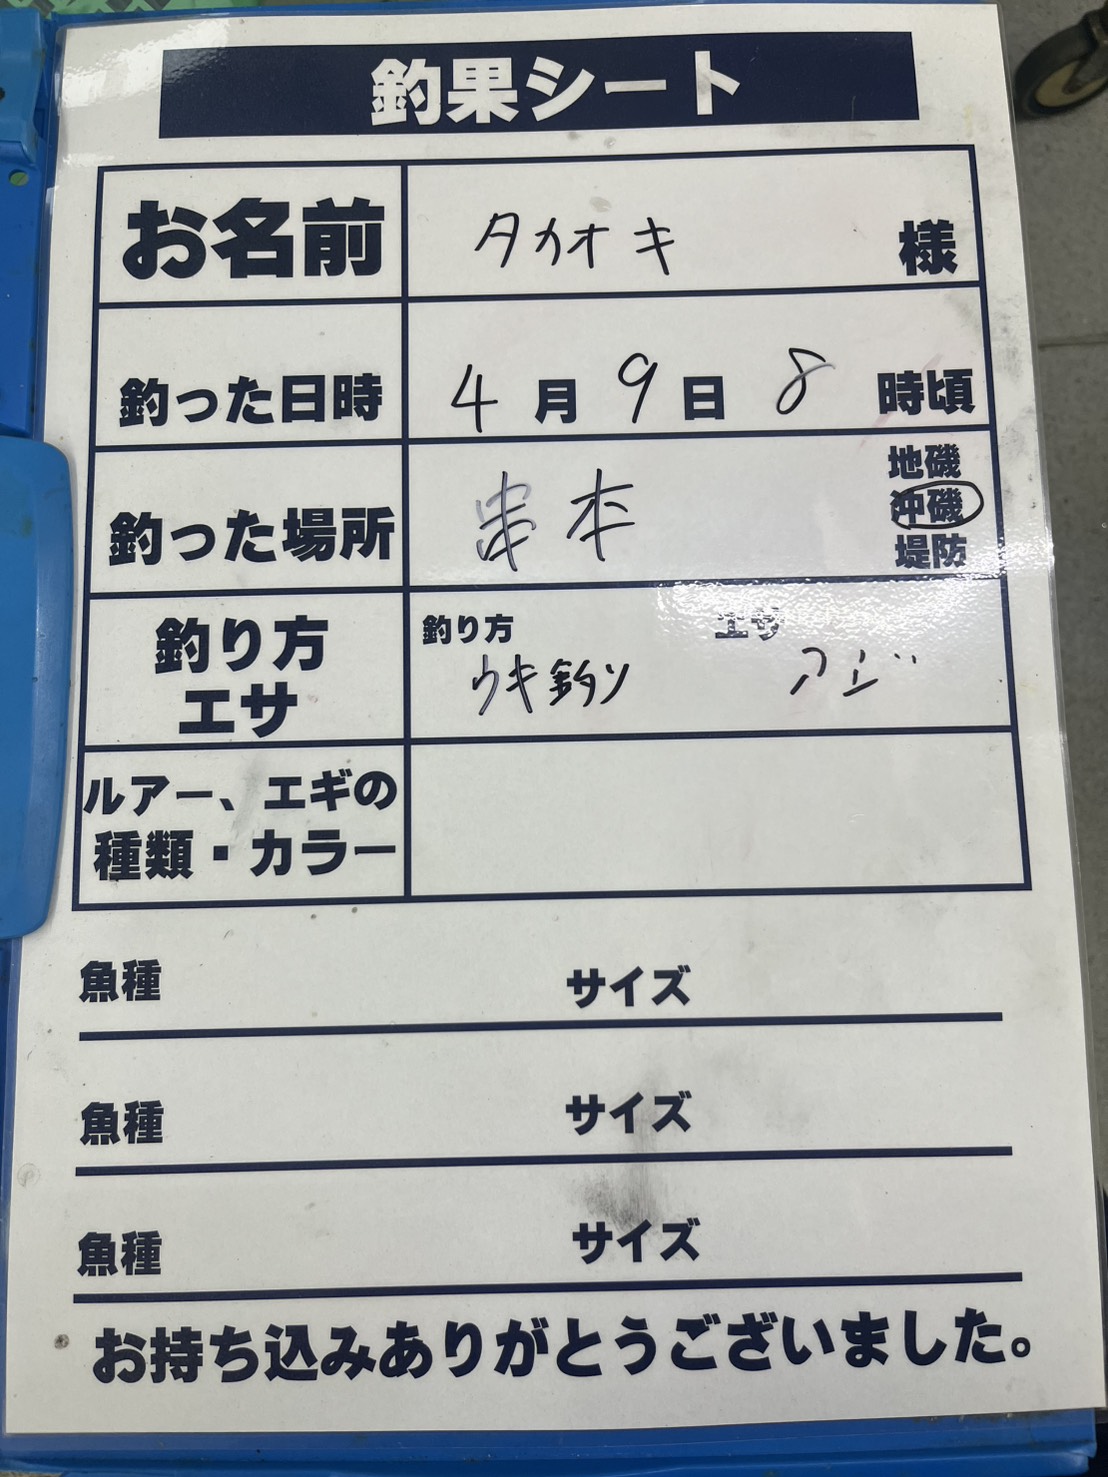 釣果シート
お名前 タカオキ 様
釣った日時 4月9日 8時頃
釣った場所 串本 地磯
沖磯
堤防
釣り方
エサ
釣り方 エサ
ウキ釣り アジ
ルアー、エギの
種類・カラー
魚種 サイズ
魚種 サイズ
魚種 サイズ
お持ち込みありがとうございました。